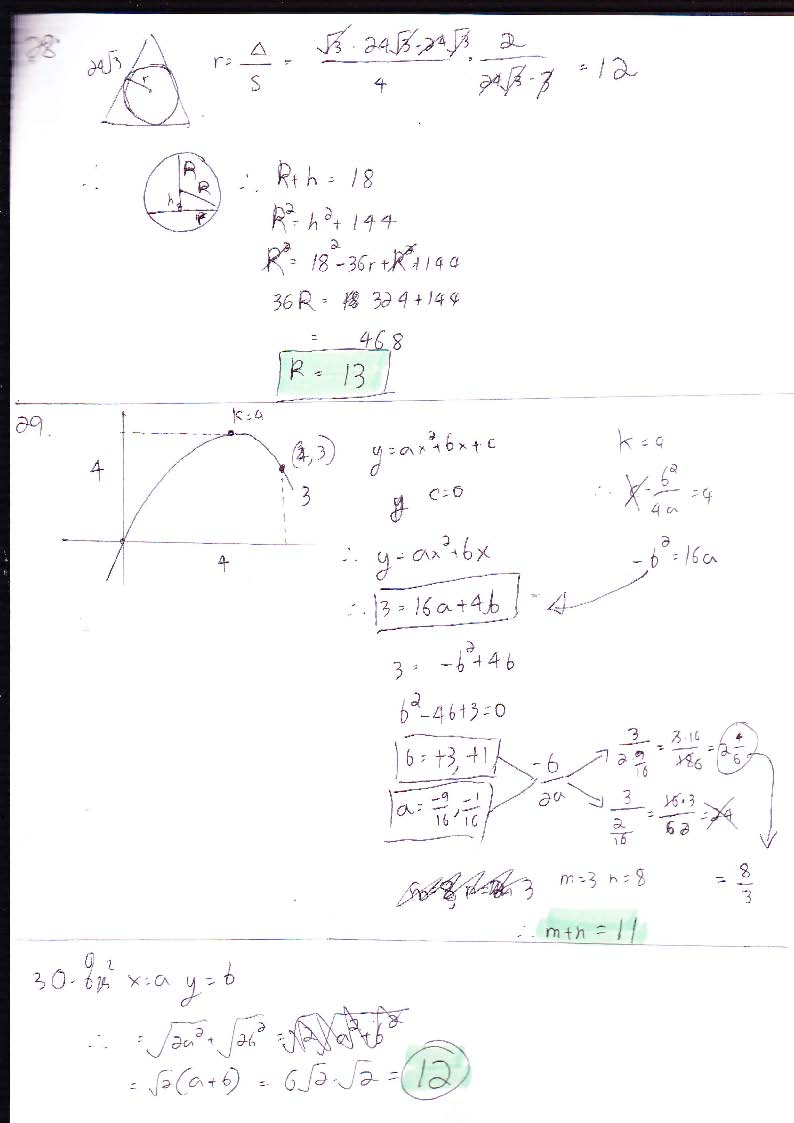 28
24√3
r
r = Δ/S = (√3 · 24√3 · 24√3)/4 · 2/(24√3 · 3) = 12
∴ R R h r ∴ R+h = 18
R² = h² + 144
R² = 18² - 36r + R² + 144
36R = 324 + 144
= 468
R = 13
29.
k=4
(4,3)
4
3
4
y=ax²+bx+c
k=4
y c=0
∴ -b²/4a = 4
∴ y=ax²+bx
-b²=16a
∴ 3=16a+4b
3 = -b²+4b
b²-4b+3=0
b=+3,+1
a=-9/16, -1/16
-b/2a
3/(2 9/16) = 3·16/186 = 2 4/6
3/(2/16) = 16·3/2 = 24
= 8/3
m=3 n=8
∴ m+n = 11
30. x=a y=b
∴ =√2a² + √2b² = √2 √a²+b²
= √2(a+b) = 6√2·√2 = 12